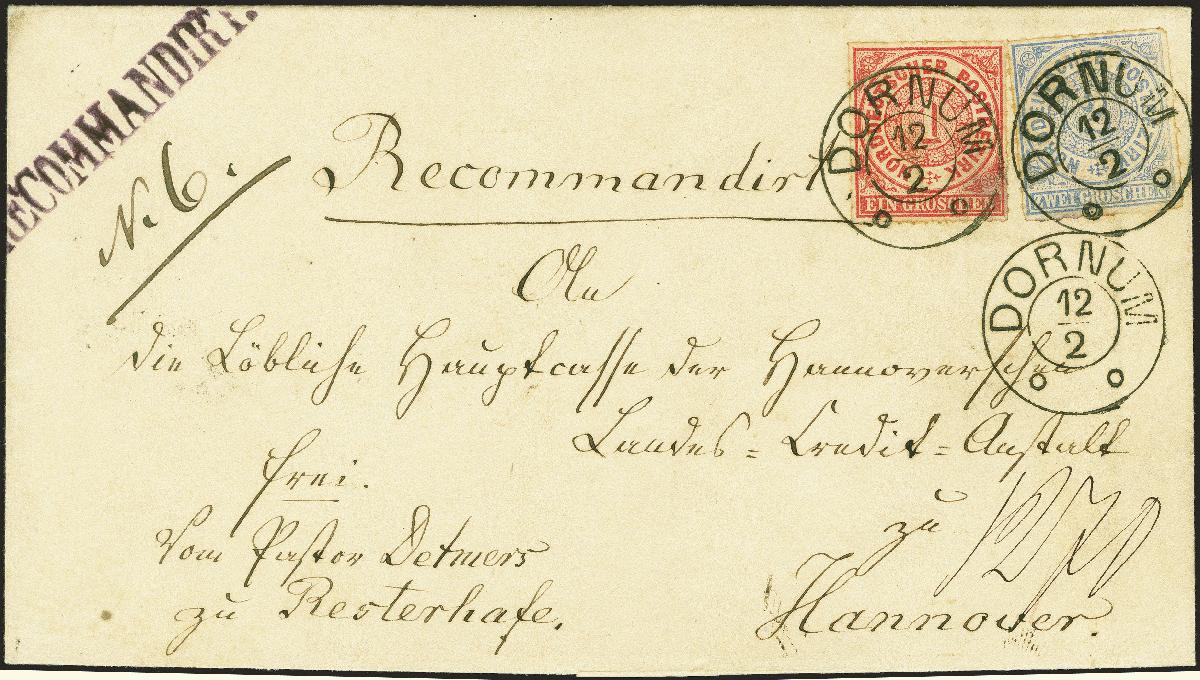 RECOMMANDIRT.
N. 6.
Recommandirt
NORDDEUTSCHER POSTBEZIRK
1
EIN GROSCHEN
NORDDEUTSCHER POSTBEZIRK
ZWEI GROSCHEN
DORNUM
12
2
DORNUM
12
2
DORNUM
12
2
An
die Löbliche Hauptcasse der Hannoverschen
Landes = Credit = Anstalt
frei.
zu
Vom Pastor Detmers
zu Resterhafe.
Hannover.